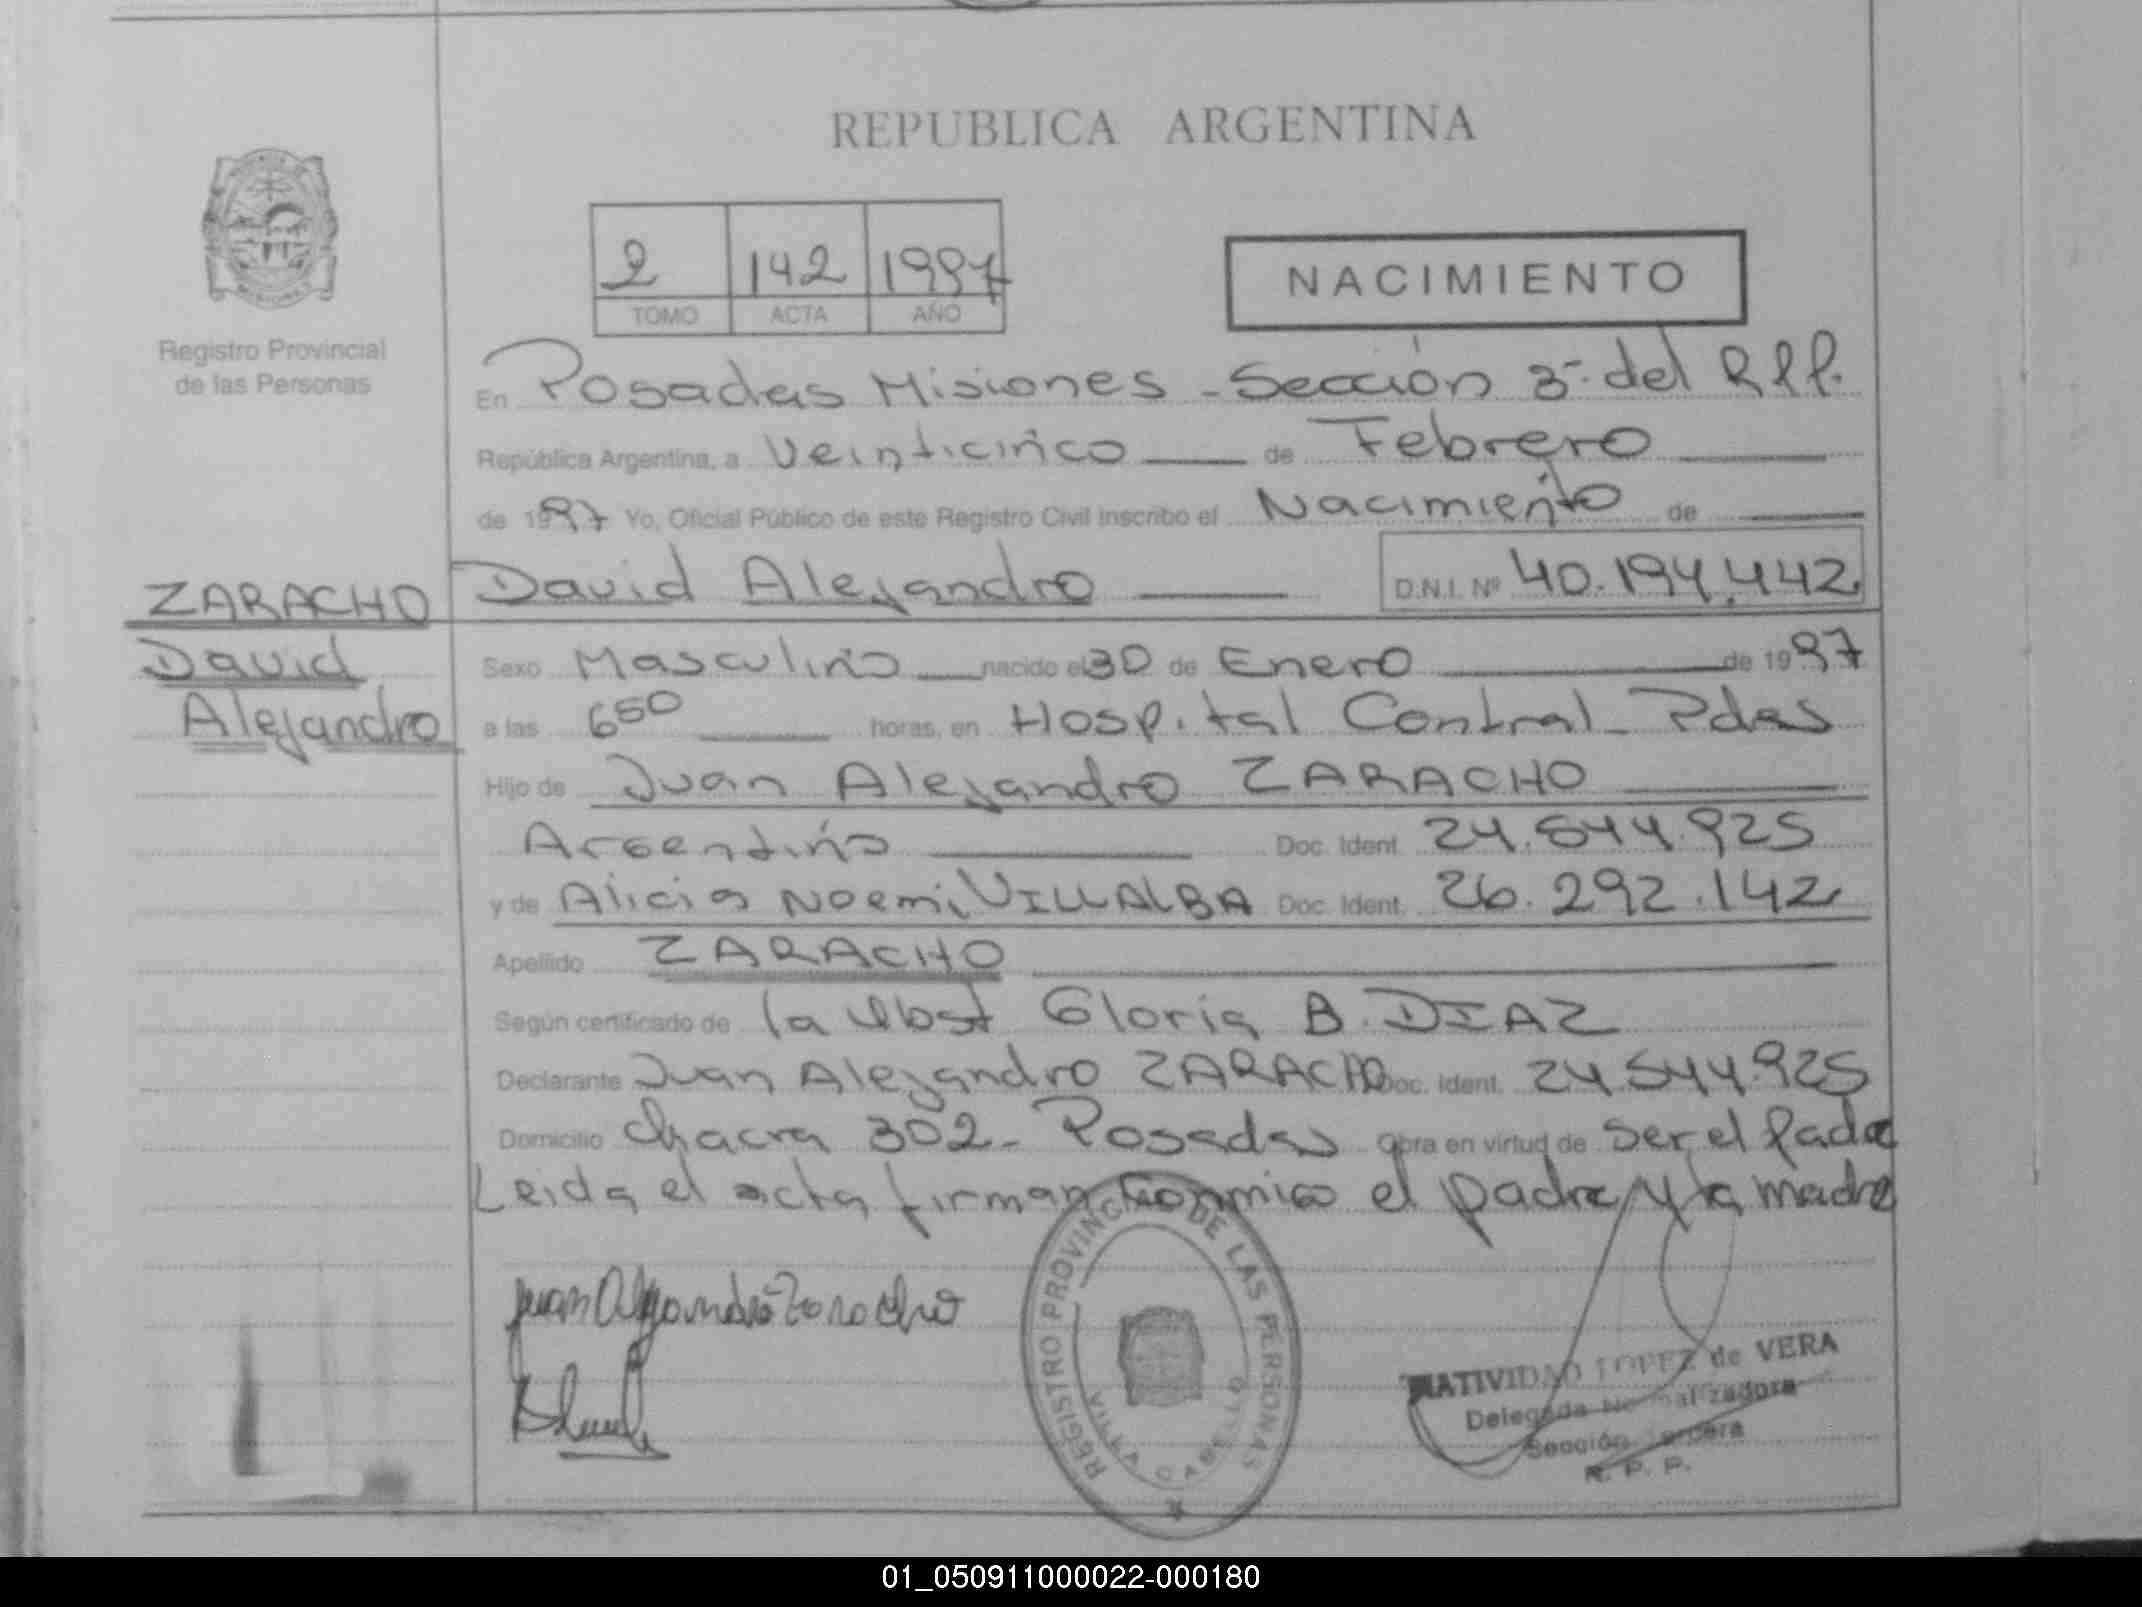 REPUBLICA ARGENTINA
2 142 1997
TOMO ACTA AÑO
NACIMIENTO
Registro Provincial
de las Personas
En Posadas Misiones - Sección 3ª del R.P.P.
República Argentina, a Veinticinco de Febrero
de 1997 Yo, Oficial Público de este Registro Civil inscribo el Nacimiento de
David Alejandro D.N.I. Nº 40.194.442
ZARACHO
David
Alejandro
Sexo Masculino nacido el 30 de Enero de 1997
a las 6 50 horas, en Hospital Central - Pdas
Hijo de Juan Alejandro ZARACHO
Argentino Doc. Ident. 24.544.925
y de Alicia Noemi VILLALBA Doc. Ident. 26.292.142
Apellido ZARACHO
Según certificado de la Obst Gloria B. DIAZ
Declarante Juan Alejandro ZARACHO Doc. Ident. 24.544.925
Domicilio Chacra 302 - Posadas Obra en virtud de ser el Padre
Leida el acta firman conmigo el padre y la madre
Juan Alejandro Zaracho
REGISTRO PROVINCIAL DE LAS PERSONAS
VILLA CABELLO
NATIVIDAD LOPEZ de VERA
Delegada Normalizadora
Sección Tercera
R. P. P.
01_050911000022-000180